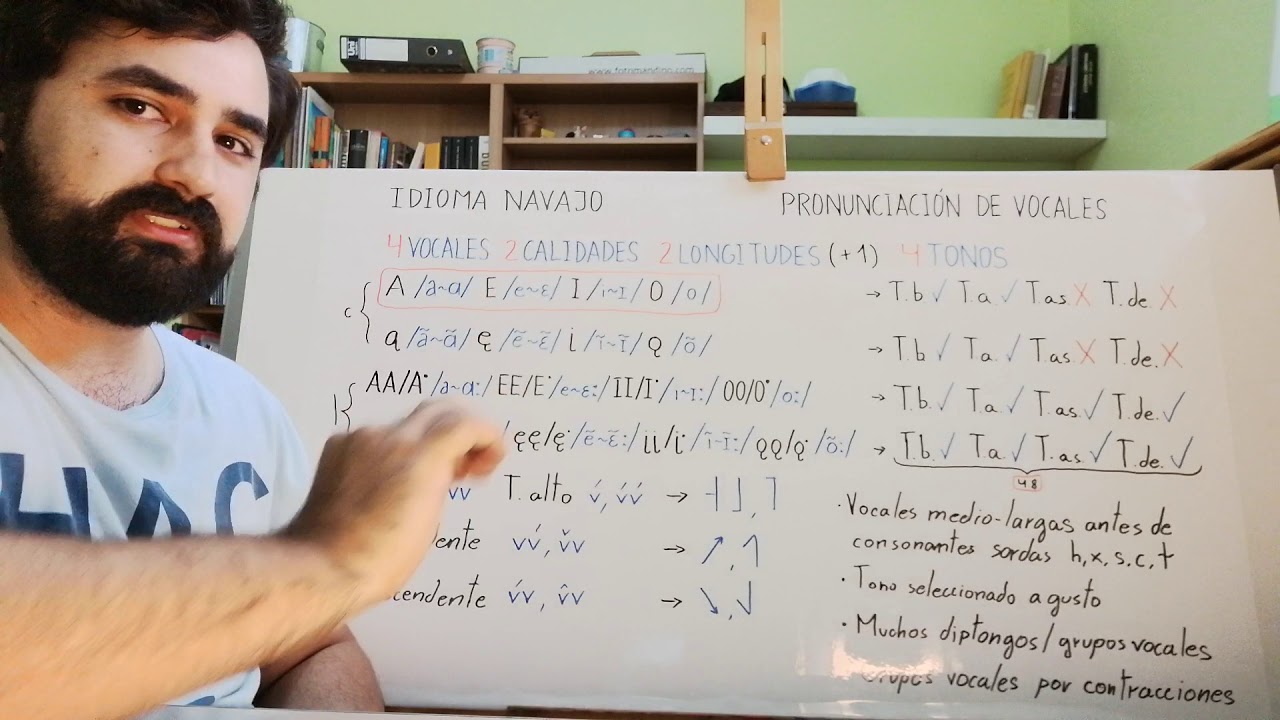 www.fotomandino.com
IDIOMA NAVAJO
PRONUNCIACIÓN DE VOCALES
4 VOCALES 2 CALIDADES 2 LONGITUDES (+1) 4 TONOS
C { A /a~ɑ/ E /e~ɛ/ I /i~ɪ/ O /o/ → T.b ✓ T.a ✓ T.as X T.de. X
ą /ã~ɑ̃/ ę /ẽ~ɛ̃/ į /ĩ~ɪ̃/ ǫ /õ/ → T.b ✓ T.a. ✓ T.as. X T.de. X
l { AA/A· /a~ɑ:/ EE/E· /e~ɛ:/ II/I· /i~ɪ:/ OO/O· /o:/ → T.b. ✓ T.a. ✓ T.as. ✓ T.de. ✓
/ ęę/ę· /ẽ~ɛ̃:/ įį/į· /ĩ~ɪ̃:/ ǫǫ/ǫ· /õ:/ → T.b. ✓ T.a. ✓ T.as. ✓ T.de. ✓
48
vv T. alto v́, v́v́ → ˧˩, ˥
dente vv́, v̌v → ↗, ˄
cendente v́v, v̂v → ↘, √
· Vocales medio-largas antes de
consonantes sordas h, x, s, c, t
· Tono seleccionado a gusto
· Muchos diptongos/grupos vocales
Grupos vocales por contracciones